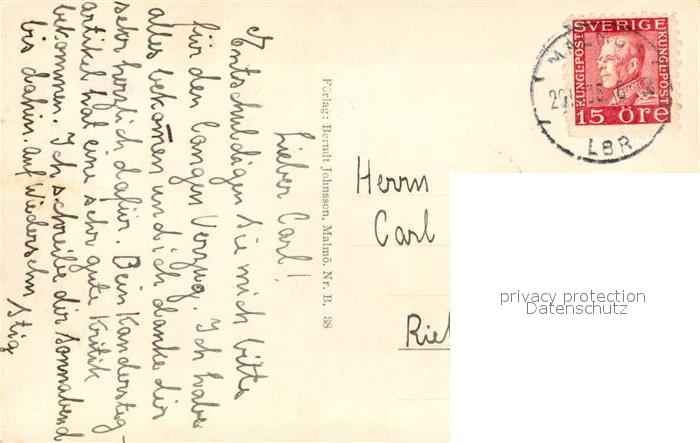 Lieber Carl!
Entschuldigen Sie mich bitte
für den langen Verzug. Ich habe
alles bekommen und ich danke dir
sehr herzlich dafür. Dein Kandersteg-
artikel hat eine sehr gute Kritik
bekommen. Ich schreibe dir Sonnabend
bis dahin. auf Wiedersehn Stig
Förlag: Berndt Johnsson, Malmö. Nr. B. 38
SVERIGE
KUNGL-POST
KUNGL-POST
15 ÖRE
MALMÖ
LBR
Herrn
Carl
privacy protection
Datenschutz